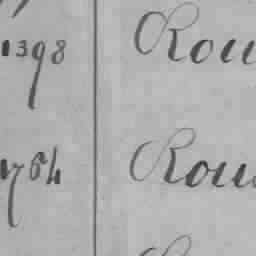 1398 Rou
764 Rou